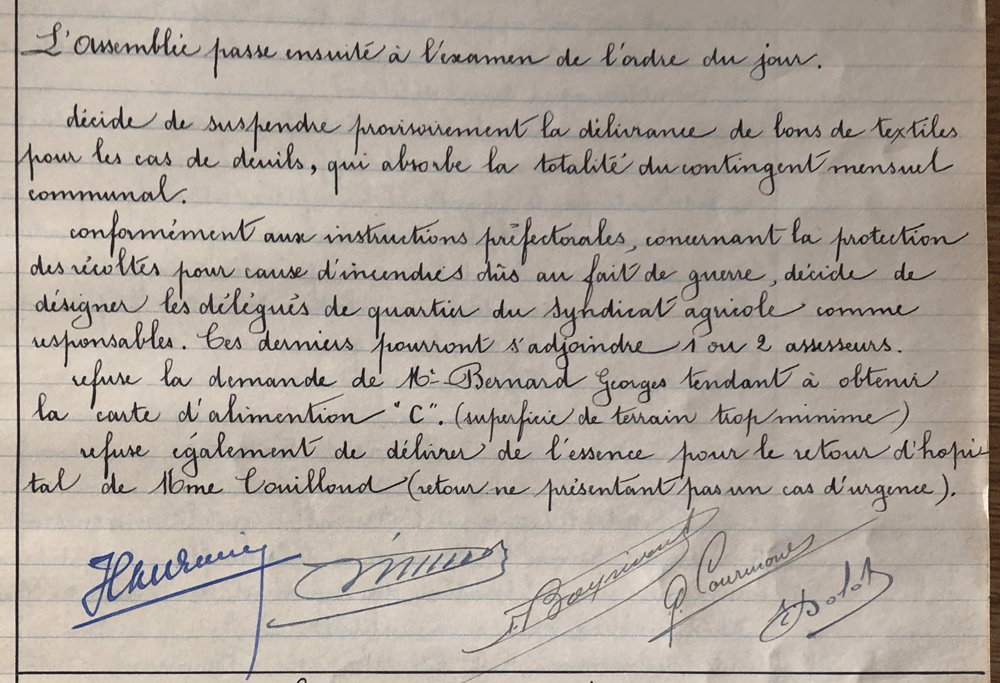 L'Assemblée passe ensuite à l'examen de l'ordre du jour.
décide de suspendre provisoirement la délivrance de bons de textiles
pour les cas de deuils, qui absorbe la totalité du contingent mensuel
communal.
conformément aux instructions préfectorales, concernant la protection
des récoltes pour cause d'incendies dûs au fait de guerre, décide de
désigner les délégués de quartier du Syndicat agricole comme
responsables. Ces derniers pourront s'adjoindre 1 ou 2 assesseurs.
refuse la demande de Mr Bernard Georges tendant à obtenir
la carte d'alimention "C". (superficie de terrain trop minime)
refuse également de délivrer de l'essence pour le retour d'hopi-
tal de Mme Couilloud (retour ne présentant pas un cas d'urgence).